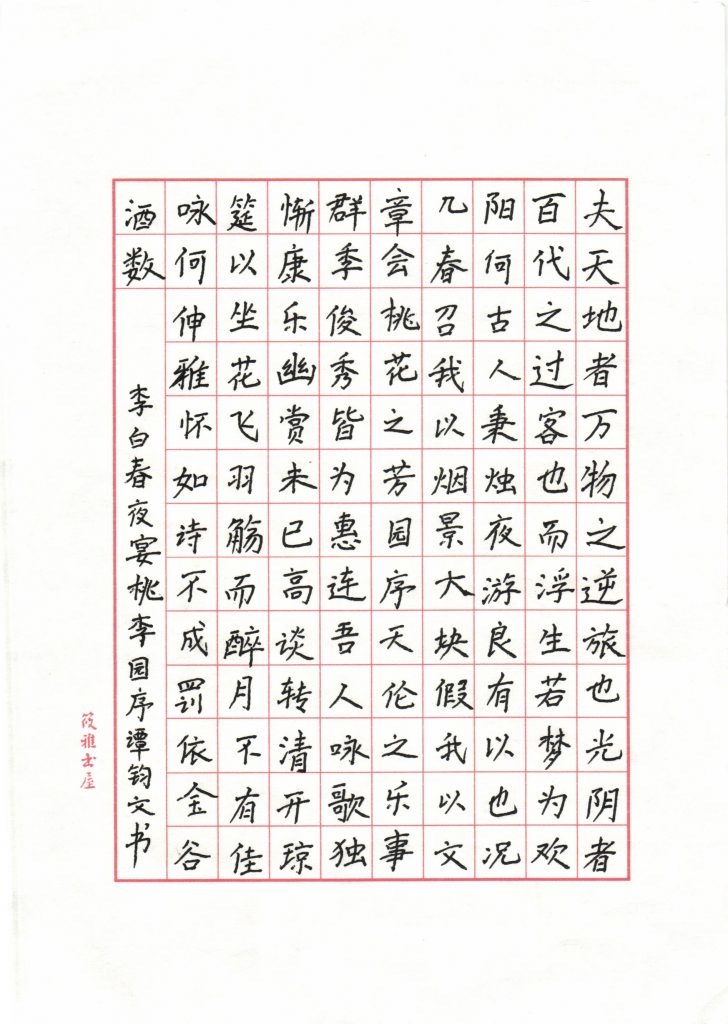 夫天地者万物之逆旅也光阴者
百代之过客也而浮生若梦为欢
阳何古人秉烛夜游良有以也况
几春召我以烟景大块假我以文
章会桃花之芳园序天伦之乐事
群季俊秀皆为惠连吾人咏歌独
惭康乐幽赏未已高谈转清开琼
筵以坐花飞羽觞而醉月不有佳
咏何伸雅怀如诗不成罚依金谷
酒数
李白春夜宴桃李园序谭钧文书
筱雅书屋